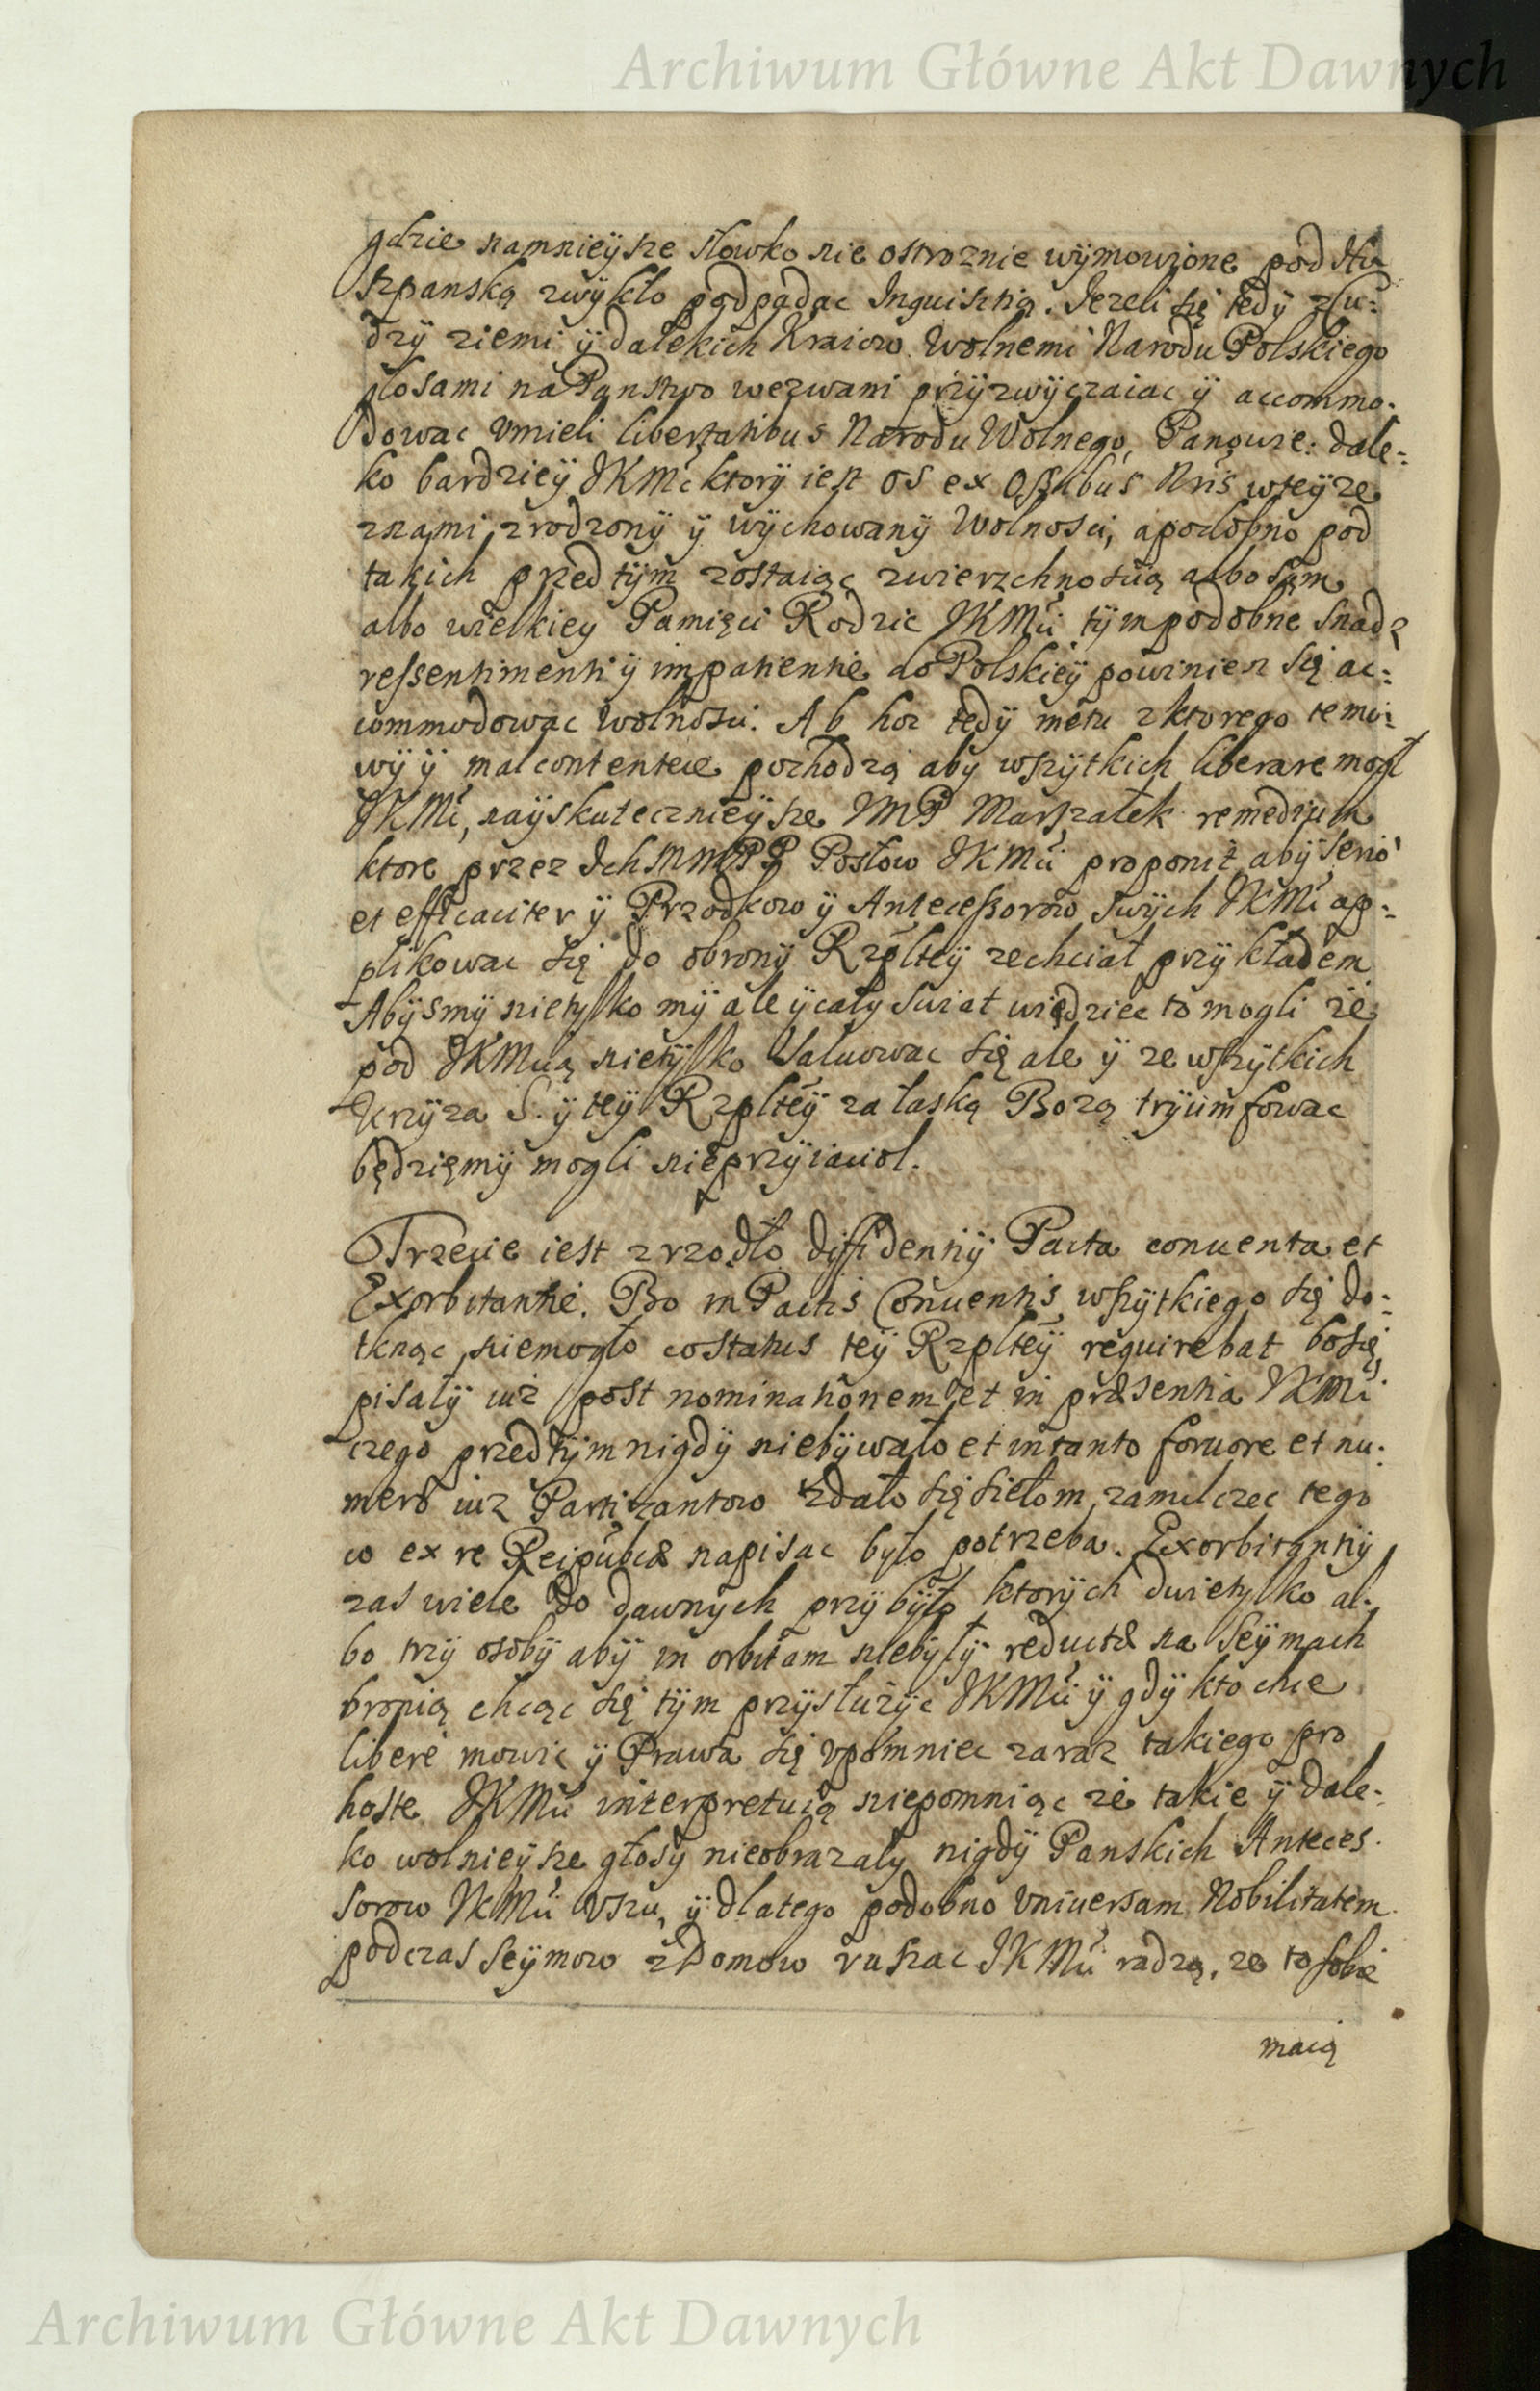 Archiwum Główne Akt Dawnych
gdzie namnieÿsze słowko nie ostroznie wÿmowione pod Hi
szpanską zwÿkło podpadac Inquisitią. Iezeli się tedÿ z Cu:
dzÿ ziemi ÿ dalekich Kraiow Wolnemi Narodu Polskiego
głosami na Panstwo wezwani przÿzwÿczaiac ÿ accommo-
dowac vmieli libertatibus Narodu Wolnego, Panowie: dale-
ko bardzieÿ JKMć ktorÿ iest os ex Ossibus Nris wteÿze
znami zrodzonÿ ÿ wÿchowanÿ Wolnosci, apodobno pod
takich przed tÿm zostaiąc zwierzchnoscią albo sam
albo wielkiey Pamięci Rodzic JKMci tÿm podobne snadz
ressentimenti ÿ impatientie do Polskieÿ powinien się ac:
commodowac wolnosci. Ab hoc tedÿ metu z ktorego te mo:
wÿ ÿ malcontentece pochodzą aby wszÿtkich liberare mogł
JKMć, naÿskutecznieÿsze JMP Marszałek remedium
ktore przez Ich MMPP Posłow JKMci proponit, abÿ serio
et efficaciter ÿ Przodkow ÿ Antecessorow swÿch JKMć ap:
plikowac się do obronÿ Rzplteÿ zechciał przÿkładem
Abÿsmÿ nietylko mÿ ale ÿ cały swiat wiedziec to mogli że
pod JKMcią nietÿlko Saluowac się ale ÿ ze wszÿtkich
Krzÿza S. ÿ teÿ Rzpltéÿ za łaską Bozą trÿumfowac
będziemÿ mogli nieprzÿiaciol.
Trzecie iest zrzodło diffidentiÿ Pacta conuenta et
Exorbitantie. Bo in Pactis Conuentis wszÿtkiego się do:
tknąc niemogło co status teÿ Rzpltéÿ requirebat bo się
pisałÿ iuż post nominationem et in præsentia JKMci
czego przedtÿm nigdÿ niebÿwało et in tanto feruore et nu-
mero iuż Partizantow zdało się siełom zamilczec tego
co ex re Reipublicæ napisac było potrzeba. Exorbitantiÿ
zas wiele do dawnych przÿbÿło ktorÿch dwie tylko al-
bo trzÿ osobÿ abÿ in orbitam niebÿłÿ reductæ na Seÿmach
bronią chcąc się tÿm przÿsłużÿc JKMci ÿ gdÿ kto chce
liberè mowic ÿ Prawa się vpomniec zaraz takiego pro
hoste JKMci interpretuią niepomniąc że takie ÿ dale-
ko wolnieÿsze głosÿ nieobrazałÿ nigdÿ Panskich Anteces-
sorow JKMci vszu, ÿ dlatego podobno vniuersam Nobilitatem
podczas Seÿmow z Domow ruszac JKMci radzą, ze to sobie
maią
Archiwum Główne Akt Dawnych